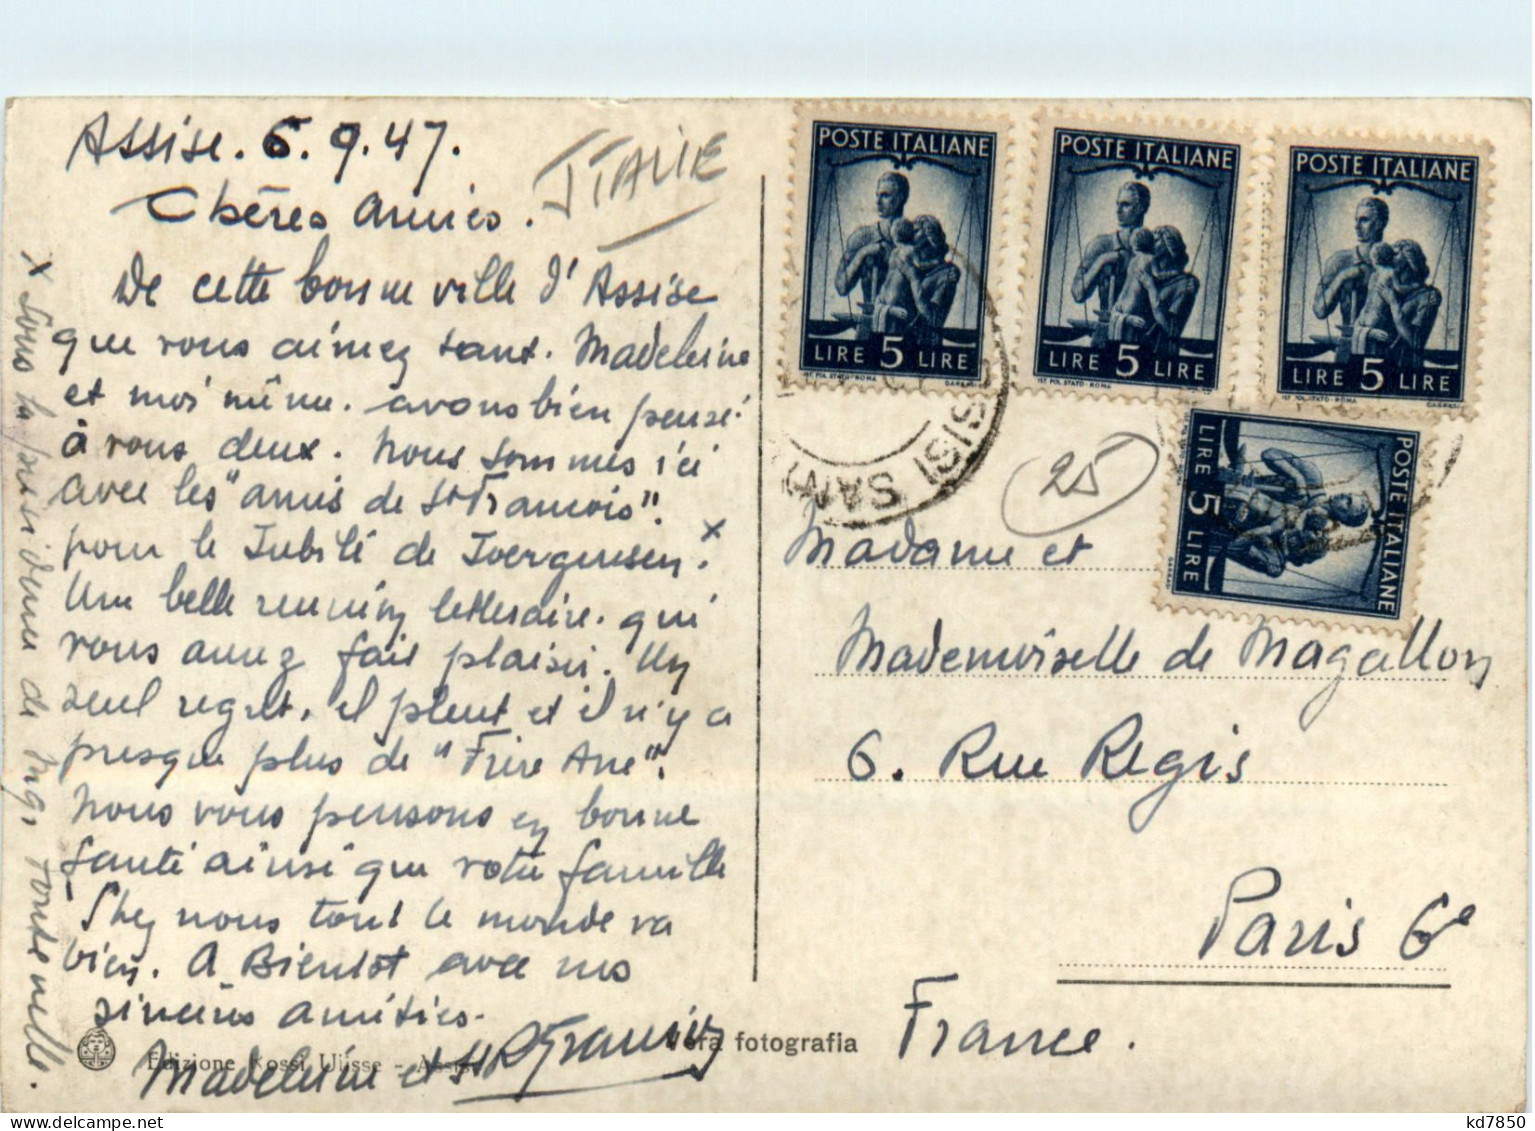 Assise. 6.9.47.
ITALIE
Chères amies.
De cette bonne ville d'Assise
que vous aimez tant. Madeleine
et moi même. avons bien pensé
à vous deux. Nous sommes ici
avec les "amis de St Francois".
pour le Jubilé de Joergensen. x
Une belle reunion litteraire. qui
vous aurez fait plaisir. Un
seul regret. il pleut et il n'y a
presque plus de "Frère Ane".
Nous vous pensons en bonne
santé ainsi que votre famille
Chez nous tout le monde va
bien. A Bientot avec nos
sincères amitiés.
Madeleine et
x Sous la présidence de Mgr Fontenelle.
Edizione Rossi Ulisse - Assisi
Vera fotografia
POSTE ITALIANE
LIRE 5 LIRE
IST. POL. STATO - ROMA
GARRASI
POSTE ITALIANE
LIRE 5 LIRE
IST. POL. STATO - ROMA
POSTE ITALIANE
LIRE 5 LIRE
IST. POL. STATO - ROMA
GARRASI
POSTE ITALIANE
LIRE 5 LIRE
25
Madame et
Mademoiselle de Magallon
6. Rue Regis
Paris 6e
France.
kd7850